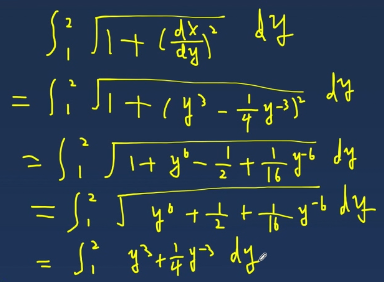 ∫₁² √(1 + (dx/dy)²) dy
= ∫₁² √(1 + (y³ - 1/4 y⁻³)²) dy
= ∫₁² √(1 + y⁶ - 1/2 + 1/16 y⁻⁶) dy
= ∫₁² √(y⁶ + 1/2 + 1/16 y⁻⁶) dy
= ∫₁² y³ + 1/4 y⁻³ dy